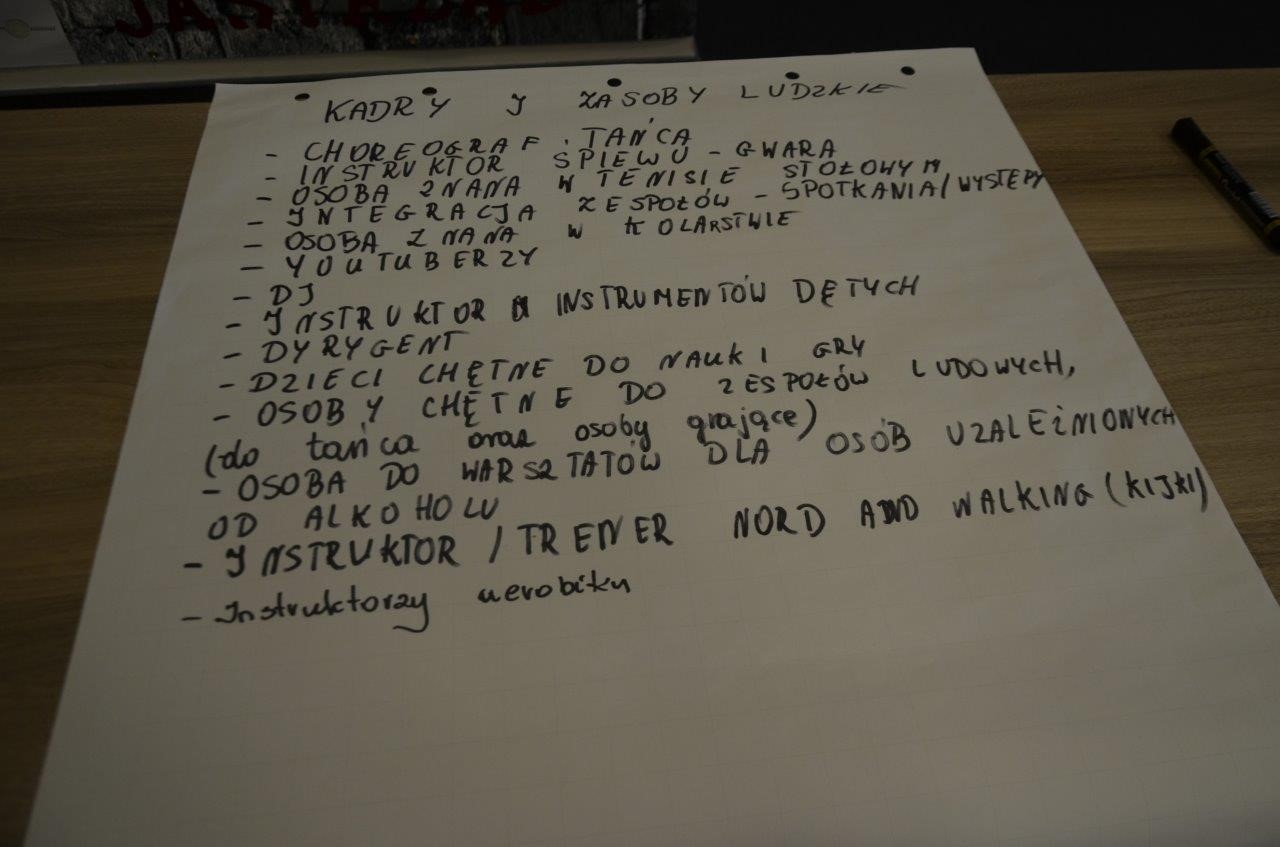 KADRY I ZASOBY LUDZKIE
- CHOREOGRAF. TAŃCA
- INSTRUKTOR ŚPIEWU - GWARA
- OSOBA ZNANA W TENISIE STOŁOWYM
- INTEGRACJA ZESPOŁÓW - SPOTKANIA/WYSTĘPY
- OSOBA ZNANA W KOLARSTWIE
- YOUTUBERZY
- DJ
- INSTRUKTOR INSTRUMENTÓW DĘTYCH
- DYRYGENT
- DZIECI CHĘTNE DO NAUKI GRY
- OSOBY CHĘTNE DO ZESPOŁÓW LUDOWYCH,
(do tańca oraz osoby grające)
- OSOBA DO WARSZTATÓW DLA OSÓB UZALEŻNIONYCH
OD ALKOHOLU
- INSTRUKTOR / TRENER NORD AND WALKING (KIJKI)
- Instruktorzy aerobiku